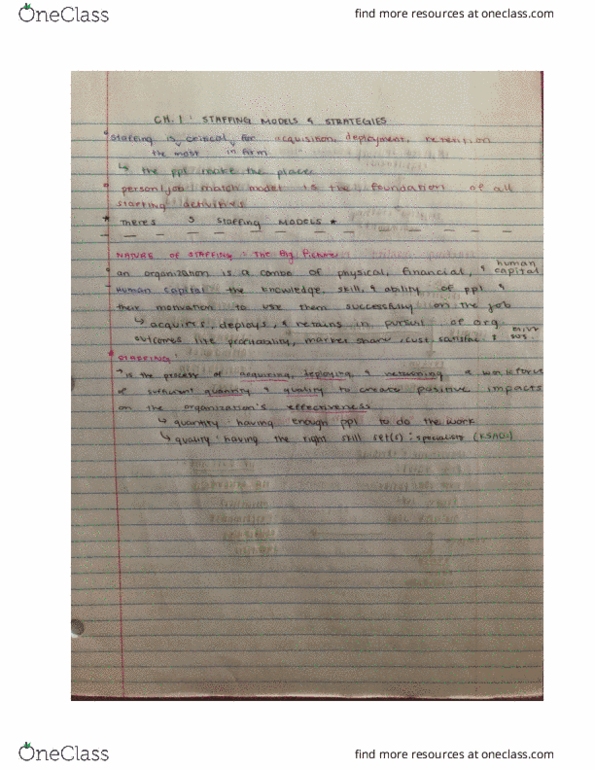 OneClass
find more resources at oneclass.com
CH. 1: STAFFING MODELS & STRATEGIES
staffing is critical for acquisition, deployment, retention
the most in firm
↳ the ppl make the place
* person/job match model is the foundation of all
staffing activities
* THERES 5 STAFFING MODELS *
NATURE OF STAFFING: The Big Picture
an organization is a combo of physical, financial, & human capital
human capital: the knowledge, skill, & ability of ppl &
their motivation to use them successfully on the job
↳ acquires, deploys, & retains in pursuit of org.
outcomes like profitability, market share, cust. satisfac &
STAFFING:
is the process of acquiring, deploying, & retaining a workforce
of sufficient quantity & quality to create positive impacts
on the organization's effectiveness
↳ quantity: having enough ppl to do the work
↳ quality: having the right skill set(s): specialists (KSAOs)
OneClass
find more resources at oneclass.com